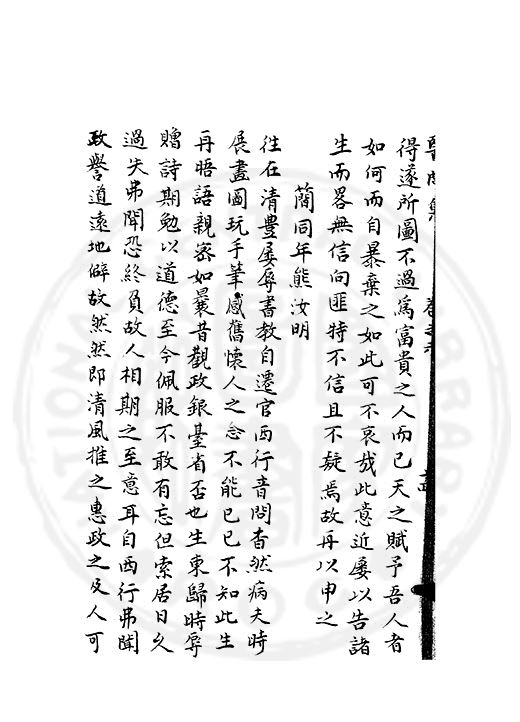 得遂所圖不過爲富貴之人而已天之賦予吾人者
如何而自暴棄之如此可不哀哉此意近屢以告諸
生而畧無信向匪特不信且不疑焉故再以申之
簡同年熊汝明
徃在清豐屢辱書教自遷官西行音問杳然病夫時
展畫圖玩手筆感舊懷人之念不能已已不知此生
再晤語親宻如曩昔觀政銀臺省否也生東歸時辱
贈詩期勉以道德至今佩服不敢有忘但索居日久
過失弗聞恐終負故人相期之至意耳自西行弗聞
政譽道遠地僻故然然即清風推之惠政之及人可